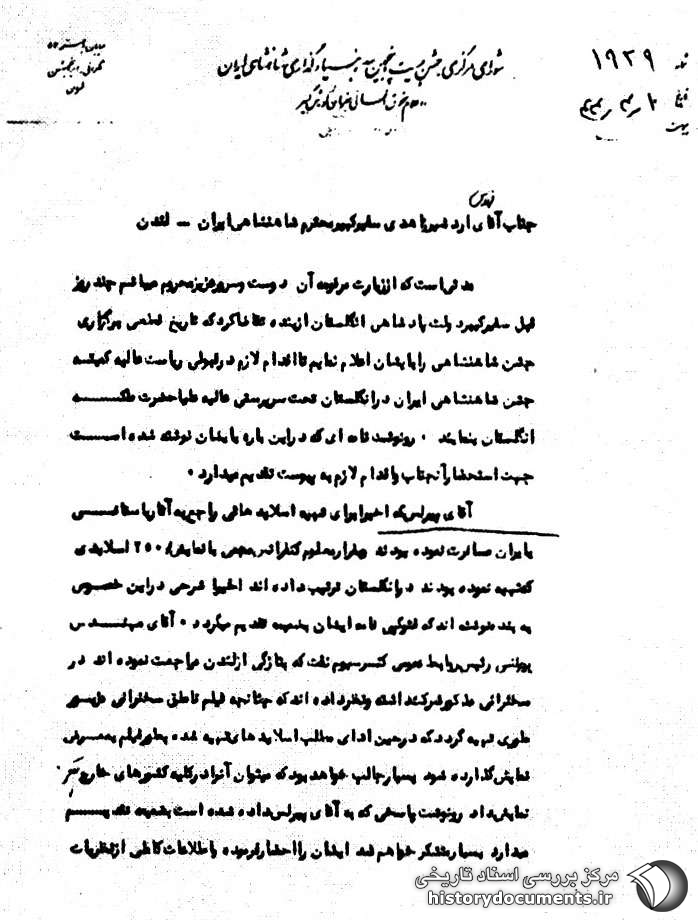 شماره ۱۹۲۹
تاریخ
پیوست
شورای مرکزی جشن بنیادگذاری شاهنشاهی ایران
جناب آقای اردشیر زاهدی سفیر کبیر محترم شاهنشاهی ایران – لندن
مدتی است که از زیارت مرقومه آن دوست و سرور عزیز محروم میباشم چند روز
قبل سفیر کبیر دولت پادشاهی انگلستان از بنده تقاضا کرد که تاریخ قطعی برگزاری
جشن شاهنشاهی را بایشان اعلام نمایم تا اقدام لازم در قبولی ریاست عالیه کمیته
جشن شاهنشاهی ایران در انگلستان تحت سرپرستی عالیه علیاحضرت ملکه
انگلستان بنمایند ۰ رونوشت نامه ای که در این باره بایشان نوشته شده است
جهت استحضار آنجناب و اقدام لازم به پیوست تقدیم میدارد ۰
آقای پیرلس که اخیرا برای تهیه اسلاید هائی راجع به آثار باستانی
بایران مسافرت نموده بودند و کنفرانس با نمایش ۲۵۰ اسلایدی
که تهیه نموده بودند در انگلستان ترتیب داده اند اخیرا شرحی در این خصوص
به بنده نوشته اند که فتوکپی نامه ایشان بضمیمه تقدیم میگردد ۰ آقای مهندس
رئیس روابط عمومی کنسرسیوم نفت که بتازگی از لندن مراجعت نموده اند در
سخنرانی مذکور شرکت داشته و نظر داده اند که چنانچه فیلم ناطق سخنرانی مزبور
طوری تهیه گردد که در حین ادای مطلب اسلاید های تهیه شده بطور فیلم بمعرض
نمایش گذارده شود بسیار جالب خواهد بود که میتوان آنرا در کلیه کشورهای خارج نیز
نمایش داد رونوشت پاسخی که به آقای پیرلس داده شده است بضمیمه تقدیم
میدارد بسیار متشکر خواهم شد ایشان را احضار فرموده با اطلاعات کاملی از نظریات
مرکز بررسی اسناد تاریخی
historydocuments.ir